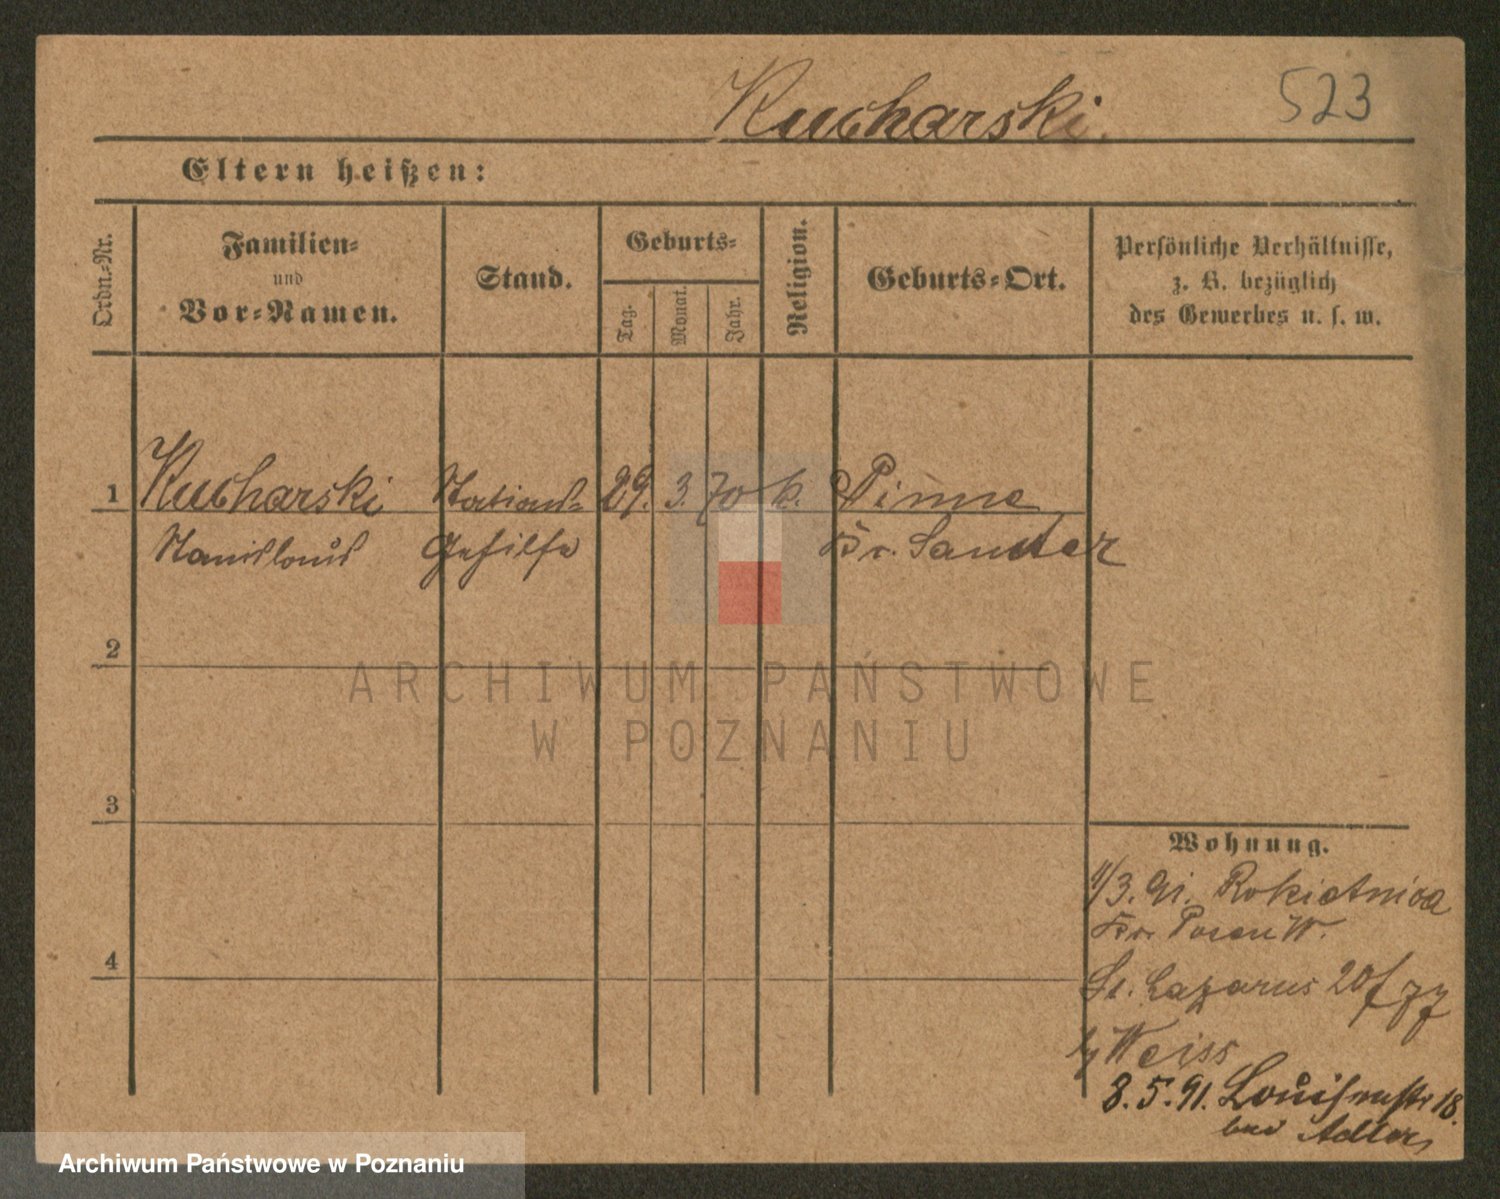 Kucharski.
523
Eltern heißen:
Ordn.-Nr.
Familien-
und
Vor-Namen.
Stand.
Geburts-
Tag.
Monat.
Jahr.
Religion.
Geburts-Ort.
Persönliche Verhältnisse,
z. B. bezüglich
des Gewerbes u. s. w.
1
Kucharski
Stanislaus
Stations-
Gehilfe
29.
3.
70
k.
Pinne
Kr. Samter
2
3
4
Wohnung.
/3. 91. Rokietnica
Kr. Posen W.
St. Lazarus 20/
Weiss
8. 5. 91. Louisenstr 18.
bei Adler
ARCHIWUM PAŃSTWOWE
W POZNANIU
Archiwum Państwowe w Poznaniu